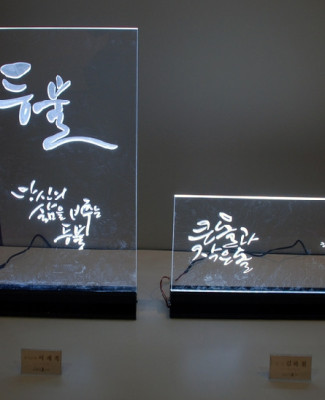 등불
당신의
삶을 비추는
등불
큰돌과
작은돌